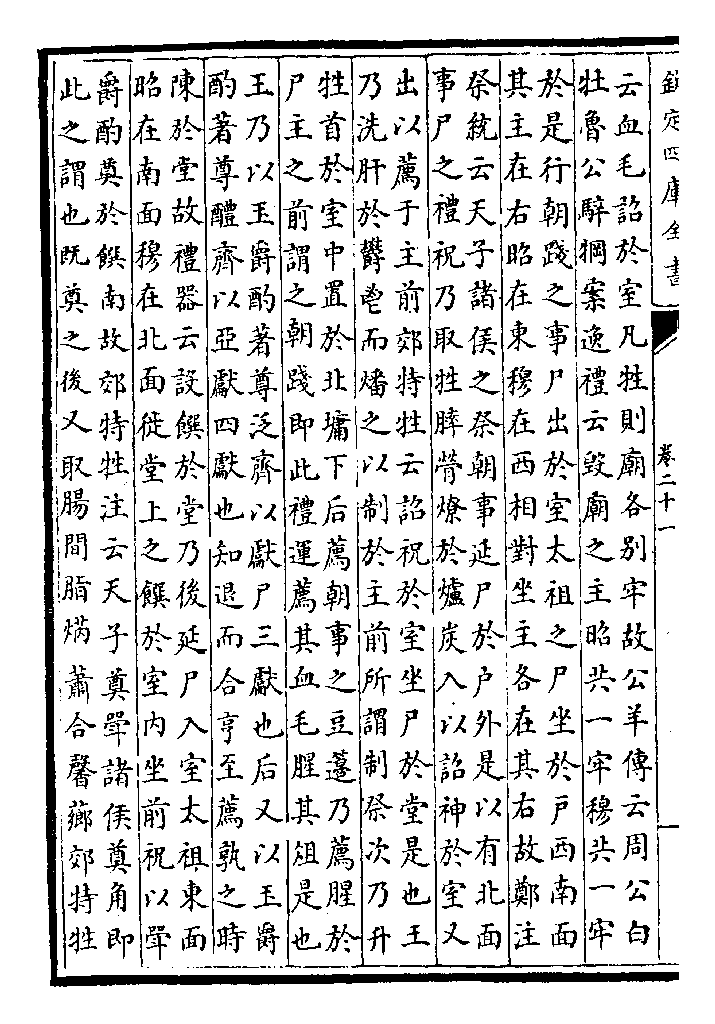 欽定四庫全書
卷二十一
云血毛詔於室凡牲則廟各别牢故公羊傳云周公白
牡魯公騂犅案逸禮云毁廟之主昭共一牢穆共一牢
於是行朝踐之事尸出於室太祖之尸坐於戸西南面
其主在右昭在東穆在西相對坐主各在其右故鄭注
祭統云天子諸侯之祭朝事延尸於户外是以有北面
事尸之禮祝乃取牲膟膋燎於爐炭入以詔神於室又
出以薦于主前郊特牲云詔祝於室坐尸於堂是也王
乃洗肝於鬱鬯而燔之以制於主前所謂制祭次乃升
牲首於室中置於北墉下后薦朝事之豆籩乃薦腥於
尸主之前謂之朝踐即此禮運薦其血毛腥其俎是也
王乃以玉爵酌著尊泛齊以獻尸三獻也后又以玉爵
酌著尊醴齊以亞獻四獻也知退而合亨至薦孰之時
陳於堂故禮器云設饌於堂乃後延尸入室太祖東面
昭在南面穆在北面徙堂上之饌於室内坐前祝以斝
爵酌奠於饌南故郊特牲注云天子奠斝諸侯奠角即
此之謂也既奠之後又取腸間脂焫蕭合馨薌郊特牲